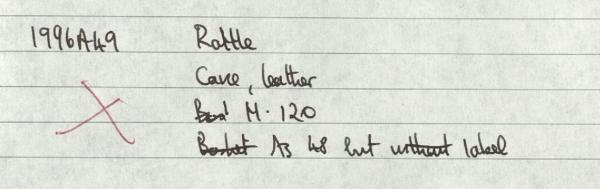 1996A49 Rattle
Cane, leather
M. 120
Basket As 48 but without label